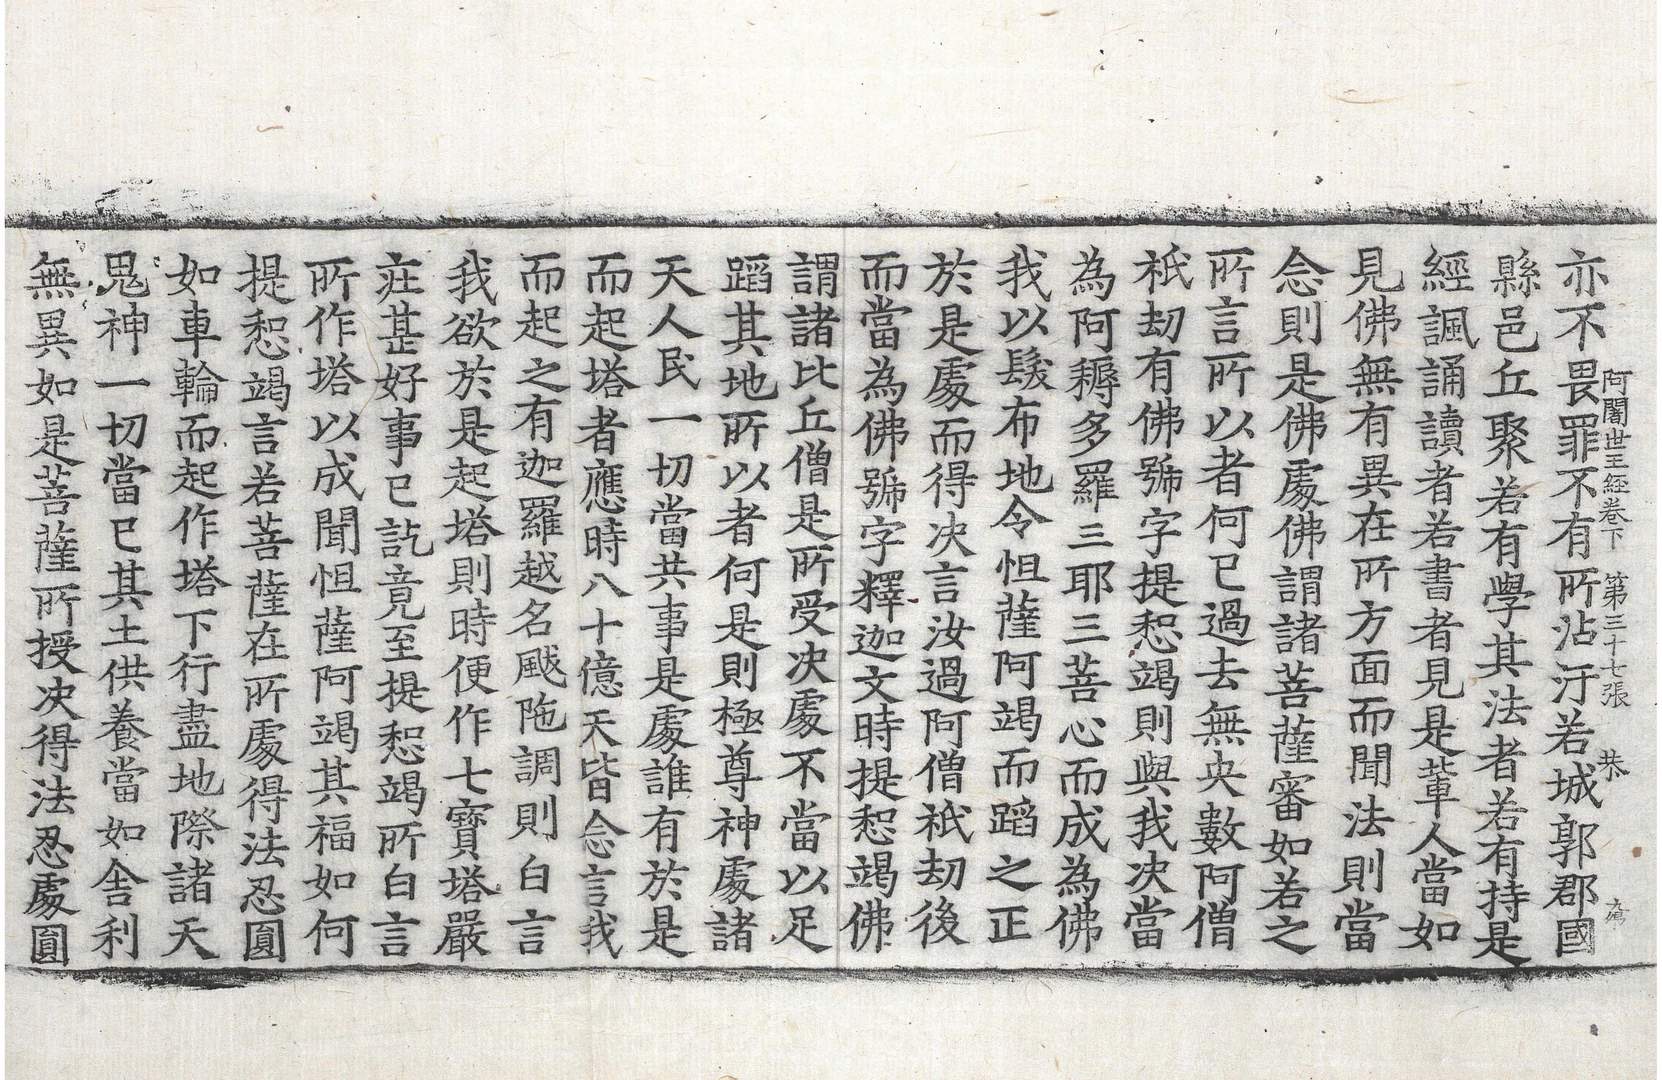 阿闍世王經卷下 第三十七張 恭
亦不畏罪不有所沾汙若城郭郡國
縣邑丘聚若有學其法者若有持是
經諷誦讀者若書者見是輩人當如
見佛無有異在所方面而聞法則當
念則是佛處佛謂諸菩薩審如若之
所言所以者何已過去無央數阿僧
祇劫有佛號字提惒竭則與我決當
為阿耨多羅三耶三菩心而成為佛
我以髮布地令怛薩阿竭而蹈之正
於是處而得決言汝過阿僧祇劫後
而當為佛號字釋迦文時提惒竭佛
謂諸比丘僧是所受決處不當以足
蹈其地所以者何是則極尊神處諸
天人民一切當共事是處誰有於是
而起塔者應時八十億天皆念言我
而起之有迦羅越名颰陁調則白言
我欲於是起塔則時便作七寶塔嚴
莊甚好事已訖竟至提惒竭所白言
所作塔以成聞怛薩阿竭其福如何
提惒竭言若菩薩在所處得法忍圓
如車輪而起作塔下行盡地際諸天
鬼神一切當已其土供養當如舍利
無異如是菩薩所授決得法忍處圓